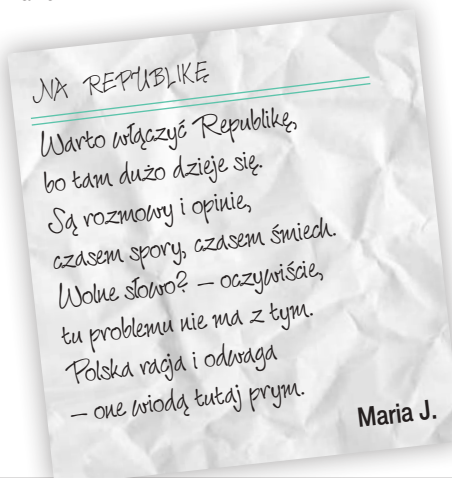 NA REPUBLIKĘ
Warto włączyć Republikę,
bo tam dużo dzieje się.
Są rozmowy i opinie,
czasem spory, czasem śmiech.
Wolne słowo? – oczywiście,
tu problemu nie ma z tym.
Polska racja i odwaga
– one wiodą tutaj prym.
Maria J.